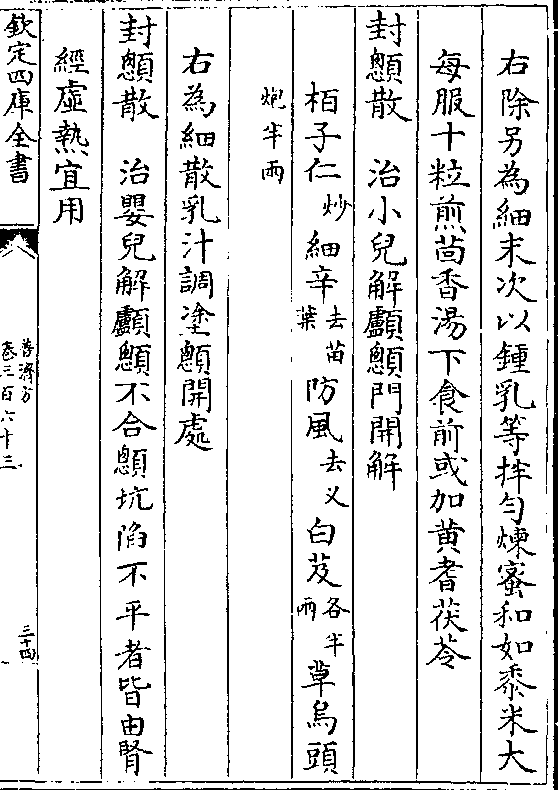 右除另為細末次以鍾乳等拌勻煉蜜和如黍米大
每服十粒煎茴香湯下食前或加黄耆茯苓
封顖散　治小兒解顱顖門開解
栢子仁炒　細辛去苗葉　防風去义　白芨各半兩　草烏頭
炮半兩
右為細散乳汁調塗顖開處
封顖散　治嬰兒解顱顖不合顖坑陷不平者皆由腎
經虛熱宜用
欽定四庫全書
普濟方
卷三百六十三
三十四